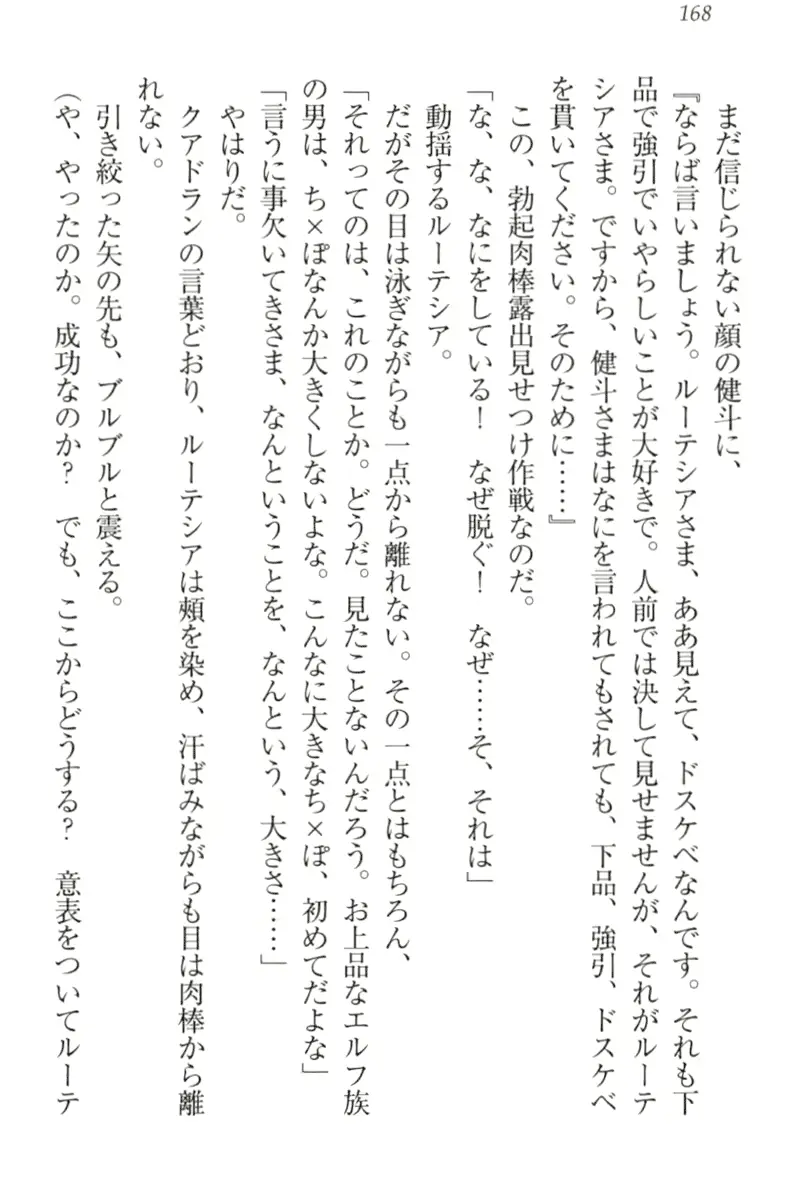 168
まだ信じられない顔の健斗に、
『ならば言いましょう。ルーテシアさま、ああ見えて、ドスケベなんです。それも下
品で強引でいやらしいことが大好きで。人前では決して見せませんが、それがルーテ
シアさま。ですから、健斗さまはなにを言われてもされても、下品、強引、ドスケベ
を貫いてください。そのために……』
この、勃起肉棒露出見せつけ作戦なのだ。
「な、な、なにをしている！　なぜ脱ぐ！　なぜ……そ、それは」
動揺するルーテシア。
だがその目は泳ぎながらも一点から離れない。その一点とはもちろん、
「それってのは、これのことか。どうだ。見たことないんだろう。お上品なエルフ族
の男は、ち×ぽなんか大きくしないよな。こんなに大きなち×ぽ、初めてだよな」
「言うに事欠いてきさま、なんということを、なんという、大きさ……」
やはりだ。
クアドランの言葉どおり、ルーテシアは頬を染め、汗ばみながらも目は肉棒から離
れない。
引き絞った矢の先も、ブルブルと震える。
（や、やったのか。成功なのか？　でも、ここからどうする？　意表をついてルーテ